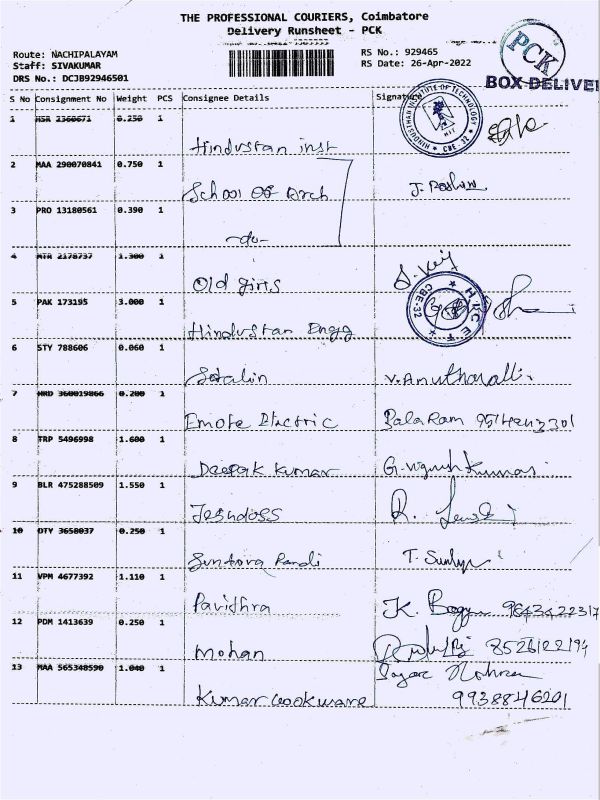 THE PROFESSIONAL COURIERS, Coimbatore
Delivery Runsheet - PCK
Route: NACHIPALAYAM
Staff: SIVAKUMAR
DRS No.: DCJB92946501
RS No.: 929465
RS Date: 26-Apr-2022
PCK
BOX DELIVE
S No Consignment No Weight PCS Consignee Details Signature
1 HSR 2360671 0.250 1
Hindustan inst
HINDUSTHAN INSTITUTE OF TECHNOLOGY
HIT
★ CBE-32 ★
2 MAA 290070841 0.750 1
School of Arch
3 PRO 13180561 0.390 1
-do-
4 MTR 2178737 1.300 1
Old girls
5 PAK 173195 3.000 1
Hindustan Engg
CBE-32
6 STY 788606 0.060 1
Stalin
7 HRD 360019866 0.200 1
Emote Electric
8 TRP 5496998 1.600 1
Deepak Kumar G. Vignesh Kumar
9 BLR 475288509 1.550 1
Jesudoss
10 OTY 3658037 0.250 1
11 VPM 4677392 1.110 1
Pavithra
12 PDM 1413639 0.250 1
Mohan 8526122194
13 MAA 565348590 1.040 1
Kumar Cookware 9938846201